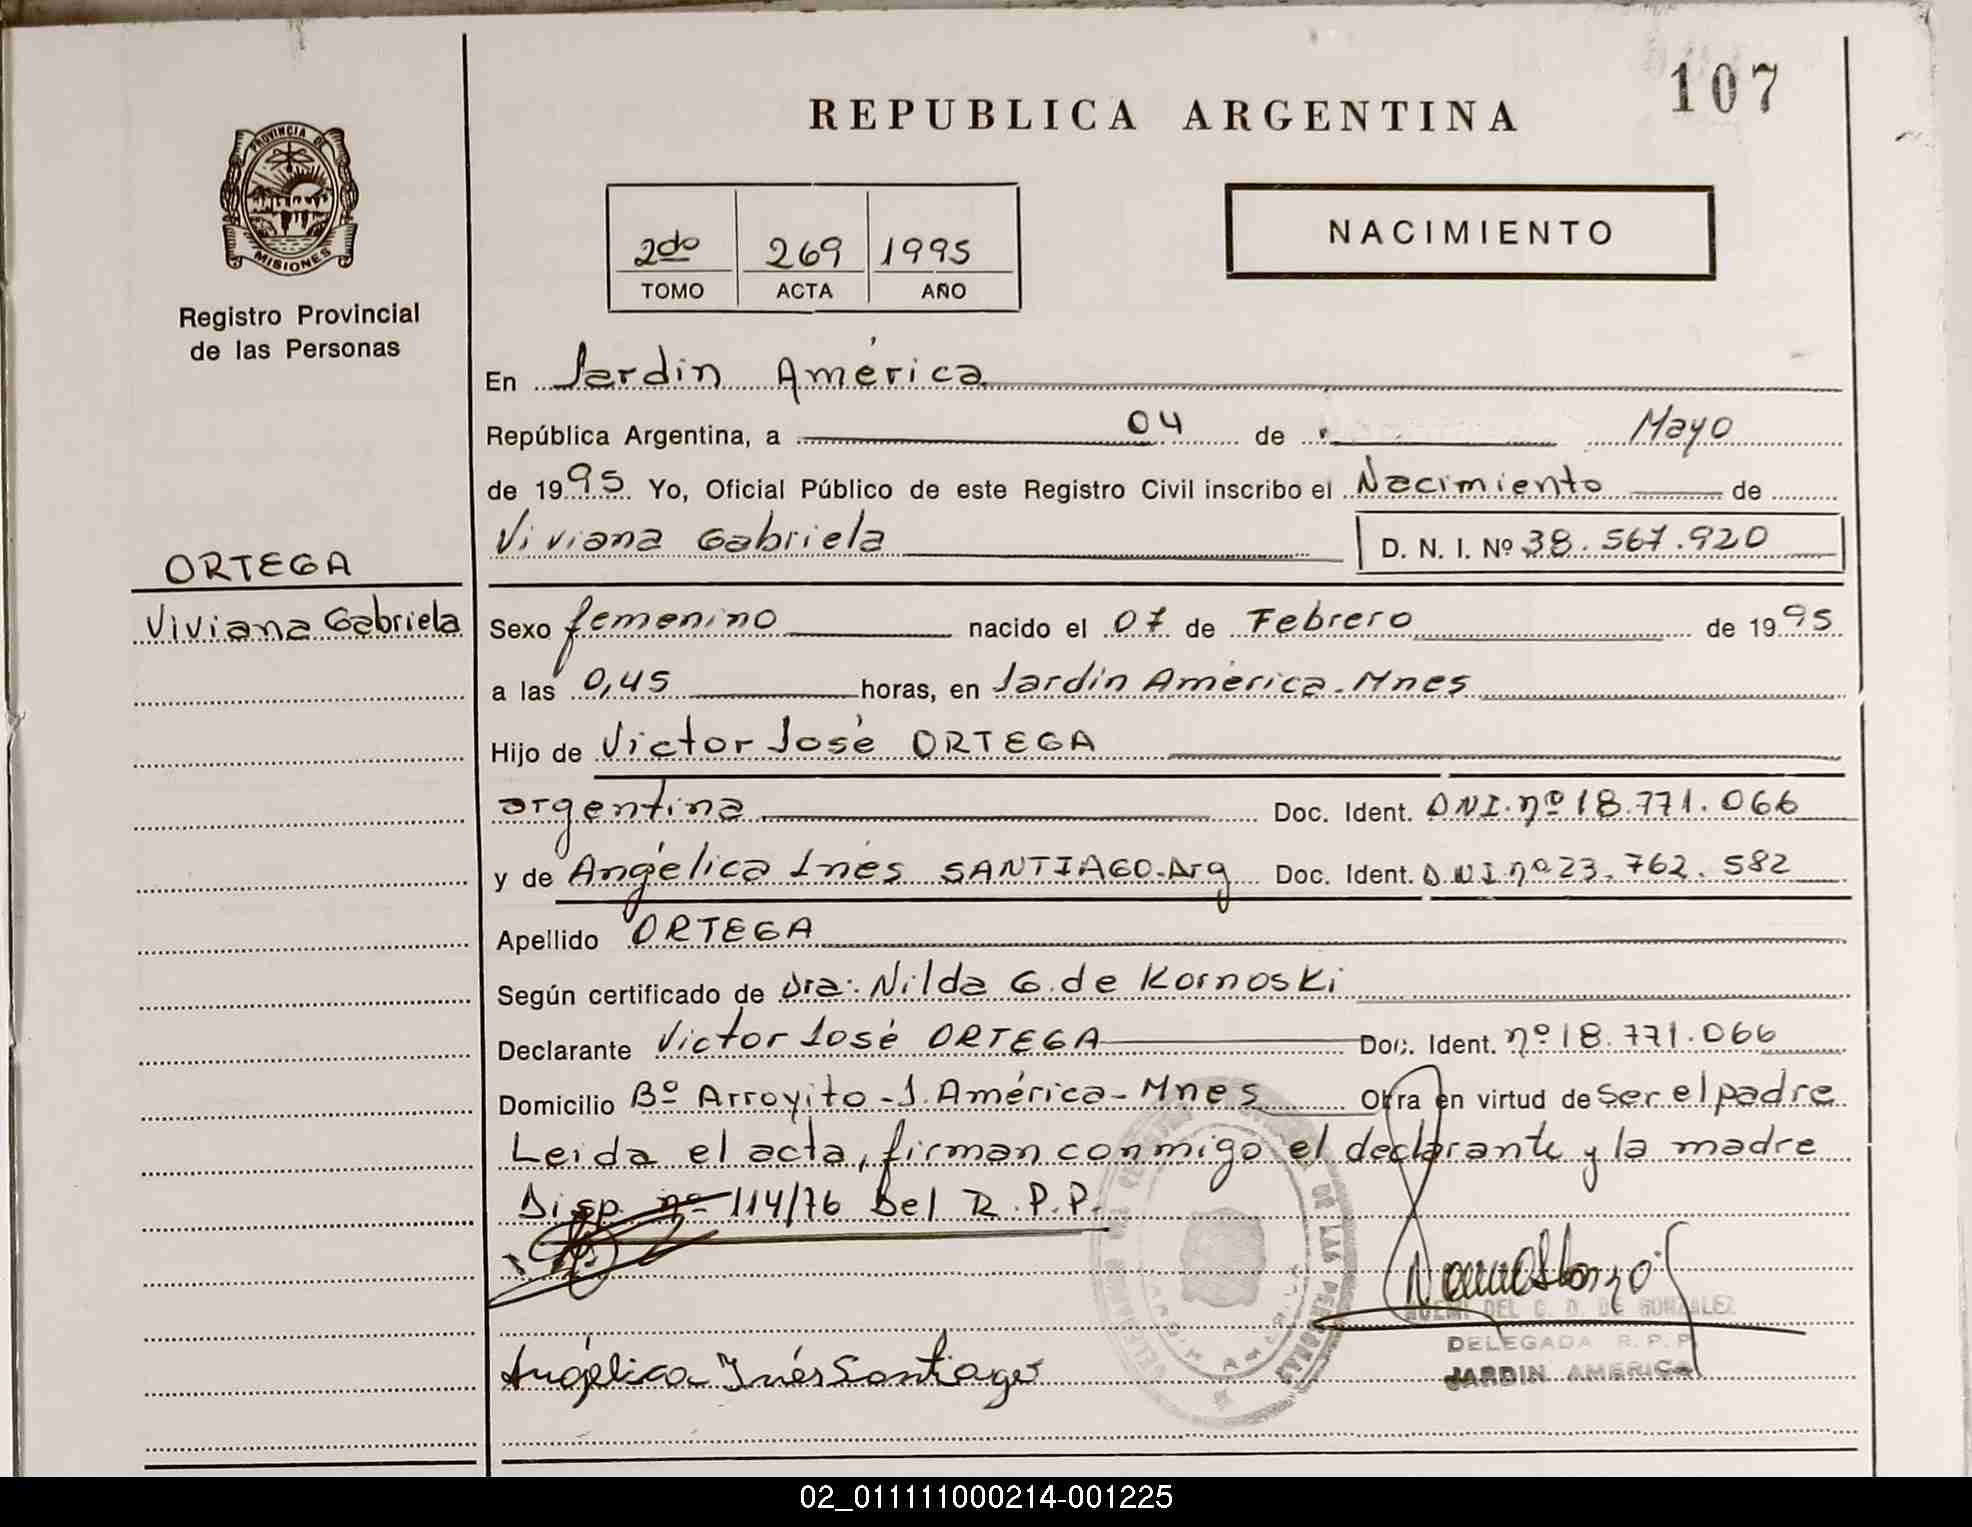 107
REPUBLICA ARGENTINA
PROVINCIA DE
MISIONES
Registro Provincial
de las Personas
2do 269 1995
TOMO ACTA AÑO
NACIMIENTO
En Jardín América
República Argentina, a 04 de Mayo
de 1995. Yo, Oficial Público de este Registro Civil inscribo el Nacimiento de
Viviana Gabriela D. N. I. Nº 38.567.920
ORTEGA
Viviana Gabriela
Sexo femenino nacido el 07 de Febrero de 1995
a las 0,45 horas, en Jardín América - Mnes
Hijo de Victor José ORTEGA
argentina Doc. Ident. DNI. nº 18.771.066
y de Angélica Inés SANTIAGO - Arg Doc. Ident. DNI nº 23.762.582
Apellido ORTEGA
Según certificado de Dra: Nilda G. de Kornoski
Declarante Victor José ORTEGA Doc. Ident. nº 18.771.066
Domicilio Bº Arroyito - J. América - Mnes Obra en virtud de ser el padre
Leida el acta, firman conmigo el declarante y la madre
Disp. nº 114/76 Del R.P.P.
DE LAS PERSONAS
NOEMI DEL C. D. DE GONZALEZ
DELEGADA R.P.P.
JARDIN AMERICA
Angélica Inés Santiago
02_011111000214-001225